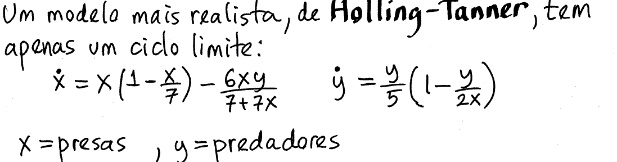 Um modelo mais realista, de Holling-Tanner, tem
apenas um ciclo limite:
ẋ = x(1-x/7) - 6xy/(7+7x)    ẏ = y/5(1-y/2x)
x = presas , y = predadores